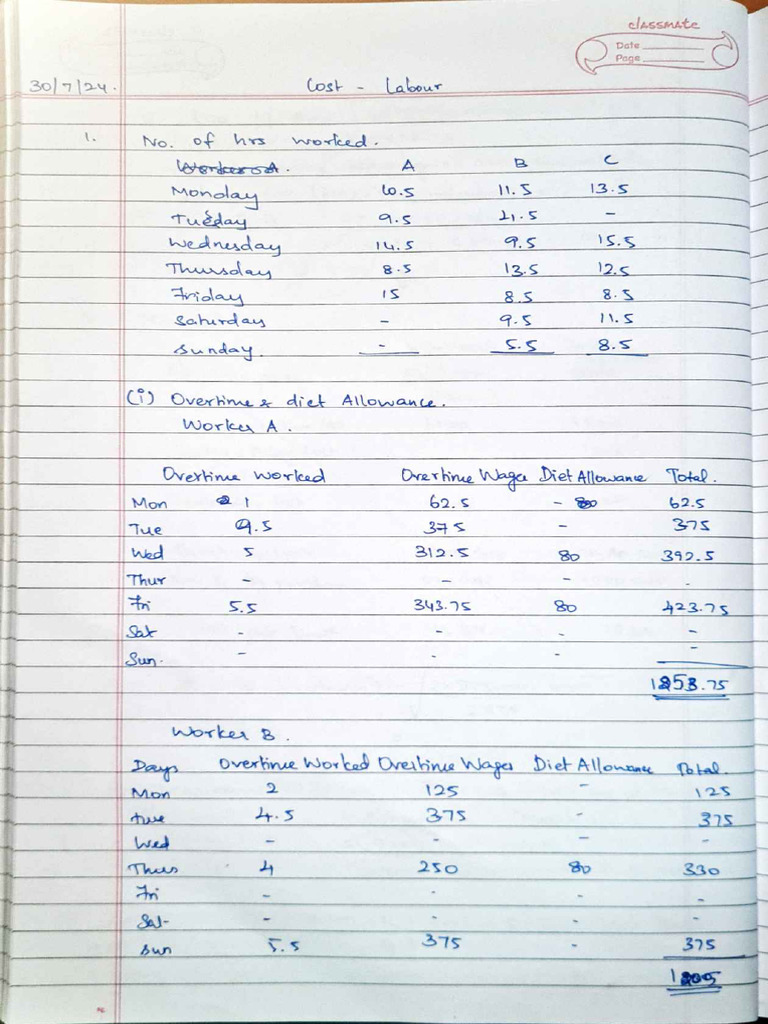 classmate
Date
Page
30/7/24. Cost - Labour
1. No. of hrs worked.
Worker A. A B C
Monday 10.5 11.5 13.5
Tuesday 9.5 21.5 -
Wednesday 14.5 9.5 15.5
Thursday 8.5 13.5 12.5
Friday 15 8.5 8.5
Saturday - 9.5 11.5
Sunday. - 5.5 8.5
(i) Overtime & diet Allowance.
Worker A.
Overtime Worked Overtime Wages Diet Allowance Total.
Mon 1 62.5 - 62.5
Tue 9.5 375 - 375
Wed 5 312.5 80 392.5
Thur - - - -
Fri 5.5 343.75 80 423.75
Sat - - - -
Sun. - - - -
1253.75
Worker B.
Days Overtime Worked Overtime Wages Diet Allowance Total.
Mon 2 125 - 125
tue 4.5 375 - 375
Wed - - - -
Thurs 4 250 80 330
Fri - - - -
Sat - - - -
Sun 5.5 375 - 375
1205